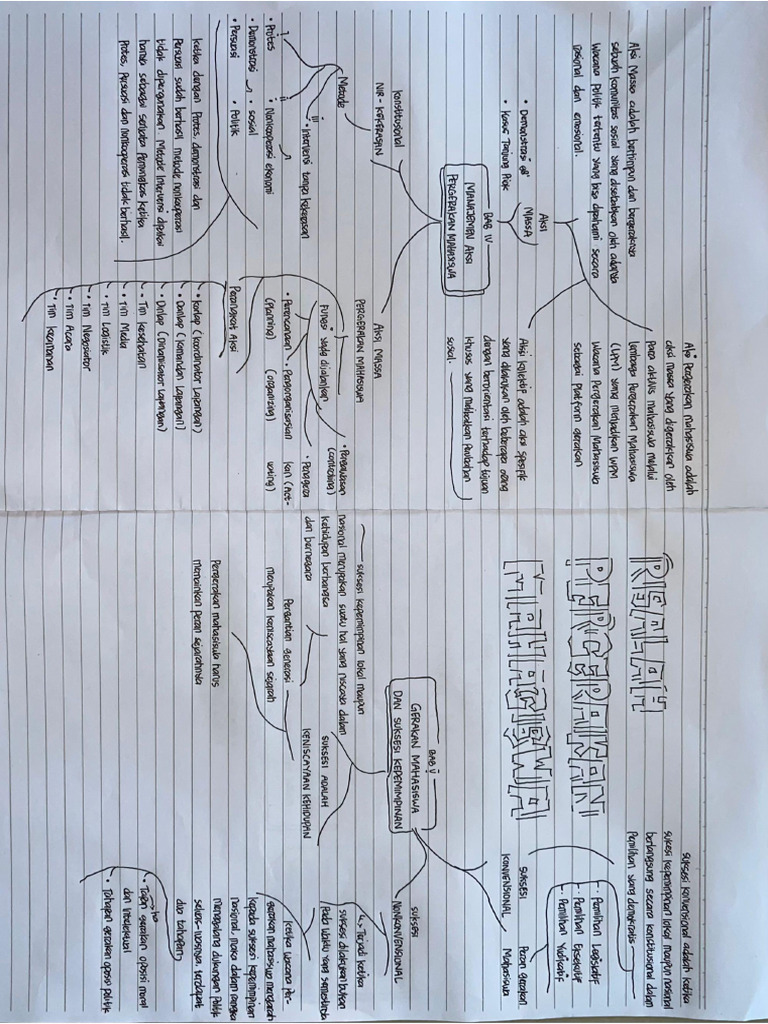 REALAH
PERGERAKAN
MAHASISWA
BAB IV
MANAJEMEN AKSI
PERGERAKAN MAHASISWA
AKSI
MASSA
• Demonstrasi
• Kasus Tanjung Priok
Aksi Massa adalah berhimpun dan bergeraknya
sebuah komunitas sosial yang disebabkan oleh adanya
wacana Politik tertentu yang bisa dipahami secara
rasional dan emosional.
Aksi Pergerakan mahasiswa adalah
aksi massa yang digerakkan oleh
para aktivis mahasiswa melalui
lembaga Pergerakan Mahasiswa
(LPM) yang menjadikan WPM
wacana Pergerakan Mahasiswa
sebagai Platform gerakan
Aksi kolektif adalah aksi spesifik
yang dilakukan oleh beberapa orang
dengan berorientasi terhadap tujuan
khusus yang melibatkan Perubahan
sosial.
Konstitusional
NIR-KEKERASAN
Metode
i
• Protes
• Demonstrasi
• Persuasi
ii
• Nonkooperasi ekonomi
• sosial
• Politik
iii
• Intervensi tanpa kekerasan
ketika dengan Protes, demonstrasi dan
Persuasi sudah berhasil metode nonkooperasi
tidak dipergunakan. Metode Intervensi dipakai
hanya sebagai senjata Pamungkas ketika
Protes, Persuasi dan nonkooperasi tidak berhasil.
AKSI MASSA
PERGERAKAN MAHASISWA
Fungsi yang dijalankan
• Perencanaan
(Planning)
• Pengorganisasian
(organizing)
• Penggera
kan (Act-
uating)
• Pengawasan
(controlling)
Perangkat Aksi
• Korlap (koordinator Lapangan)
• Danlap (Komandan Lapangan)
• Dinlap (Dinamisator Lapangan)
• Tim kesehatan
• Tim Media
• Tim Logistik
• Tim Negosiator
• Tim Acara
• Tim keamanan
BAB V
GERAKAN MAHASISWA
DAN SUKSESI KEPEMIMPINAN
SUKSESI ADALAH
KENISCAYAAN KEHIDUPAN
suksesi kepemimpinan lokal maupun
nasional merupakan suatu hal yang niscaya dalam
kehidupan berbangsa
dan bernegara
Pergantian generasi
merupakan keniscayaan sejarah
Pergerakan mahasiswa harus
memainkan peran sejarahnya
SUKSESI
KONVENSIONAL
suksesi konvensional adalah ketika
suksesi kepemimpinan lokal maupun nasional
berlangsung secara konstitusional dalam
Pemilihan yang demokratis
Peran gerakan
Mahasiswa
- Pemilihan Legislatif
- Pemilihan Eksekutif
- Pemilihan Yudikatif
SUKSESI
NONKONVENSIONAL
↳ Terjadi ketika
suksesi dilakukan bukan
pada waktu yang semestinya
Ketika wacana Per-
gerakan mahasiswa mengarah
kepada suksesi kepemimpinan
nasional, maka dalam rangka
menggalang dukungan Politik
seluas-luasnya terdapat
dua tahapan
• Tahapan gerakan oposisi moral
dan intelektual
• Tahapan gerakan oposisi politik